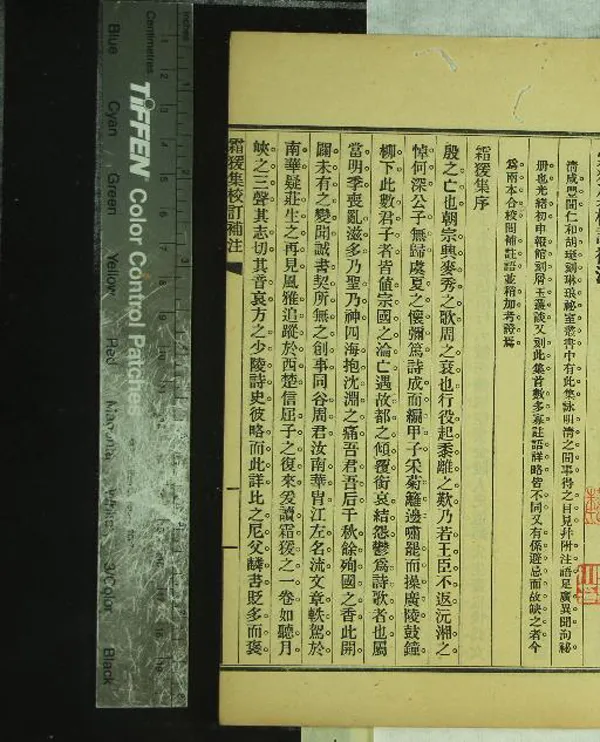 淸咸豐間仁和胡珽刻琳琅秘室叢書中有此集詠明淸之間事得之目見幷附注語足廣異聞洵秘
册也光緒初申報館刻屑玉叢談又刻此集首數多寡註語詳略皆不同又有係避忌而故缺之者今
爲兩本合校間補註語並稍加考證焉
霜猨集序
殷之亡也朝宗興麥秀之歌周之衰也行役起黍離之歎乃若王臣不返沅湘之
悼何深公子無歸虞夏之懷彌篤詩成而編甲子采菊籬邊嘯罷而操廣陵鼓鐘
柳下此數君子者皆値宗國之淪亡遇故都之傾覆銜哀結怨鬱爲詩歌者也屬
當明季喪亂滋多乃聖乃神四海抱沈淵之痛吾君吾后千秋餘殉國之香此開
闢未有之變聞誠書契所無之創事同谷周君汝南華胄江左名流文章軼駕於
南華疑莊生之再見風雅追蹤於西楚信屈子之復來爰讀霜猨之一卷如聽月
峽之三聲其志切其音哀方之少陵詩史彼略而此詳比之尼父麟書貶多而褒
霜猨集校訂補注
Centimetres
Inches
TIFFEN Color Control Patches
Blue
Cyan
Green
Yellow
Red
Magenta
White
3/Color
Black